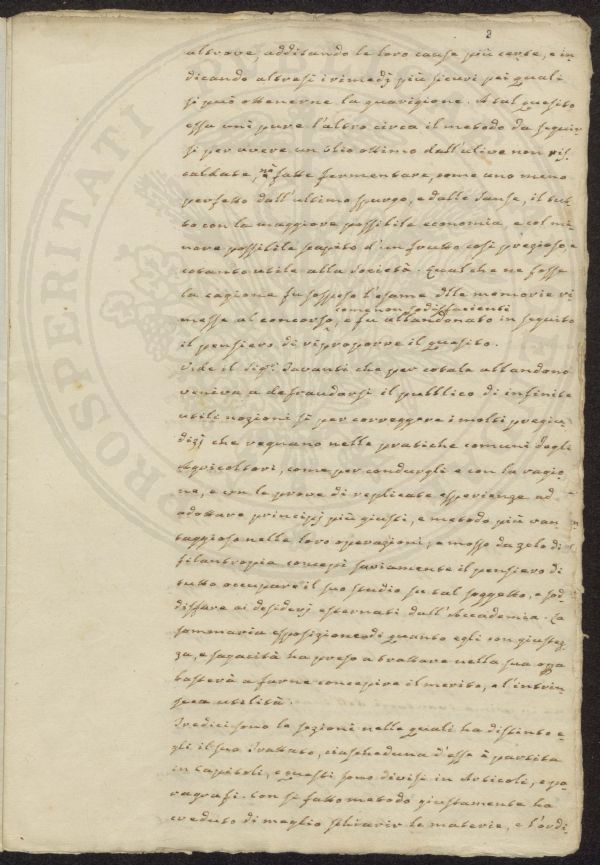 2
altrove, additando le loro cause più certe, e in-
dicando altresì i rimedj più sicuri pei quali
si può ottenerne la guarigione. A tal quesito
essa unì pure l'altro circa il metodo da seguir-
si per avere un olio ottimo dall'ulive non ris-
caldate, nè fatte fermentare, come uno meno
perfetto dall'ultimo spurgo, e dalle sanse, il tut-
to con la maggiore possibile economia, e col mi-
nore possibile scapito d'un frutto così prezioso, e
cotanto utile alla Società. Qual che ne fosse
la cagione fu sospeso l'esame delle memorie ri-
come non sodisfacienti
messe al concorso, e fu abbandonato in seguito
il pensiero di riproporre il quesito.
Vide il Sig.r Tavanti che per cotale abbandono
veniva a defraudarsi il pubblico di infinite
utili nozioni sì per correggere i molti pregiu-
dizj che regnano nelle pratiche comuni degli
Agricoltori, come per condurgli e con la ragio-
ne, e con le prove di replicate esperienze ad
adottare principj più giusti, e metodo più van-
taggioso nelle loro operazioni, e mosso da zelo di
filantropia concepì saviamente il pensiero di
tutto occupare il suo studio su tal soggetto, e sod-
disfare ai desiderj esternati dall'Accademia. La
sommaria esposizione di quanto egli con giustez-
za, e sagacità ha preso a trattare nella sua opra
basterà a farne concepire il merito, e l'intrin-
seca utilità.
Tredici sono le sezioni nelle quali ha distinto e-
gli il suo Trattato, ciascheduna d'esse è partita
in Capitoli, e questi sono divisi in Articoli, e pa-
ragrafi. Con sì fatto metodo giustamente ha
creduto di meglio schiarir le materie, e l'ordi-
PROSPERITATI